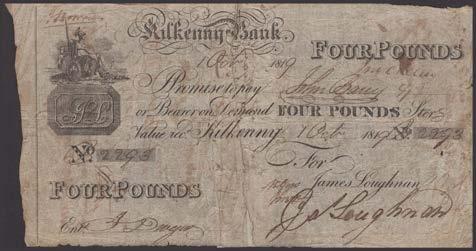 Kilkenny Bank
FOUR POUNDS
1 Oct 1819
I Promise to pay John Craig
or Bearer on Demand FOUR POUNDS Ster
Value rec Kilkenny 1 Oct 1819 No 2293
JL
No 2293
For
FOUR POUNDS James Loughnan
Ent Jas Loughnan